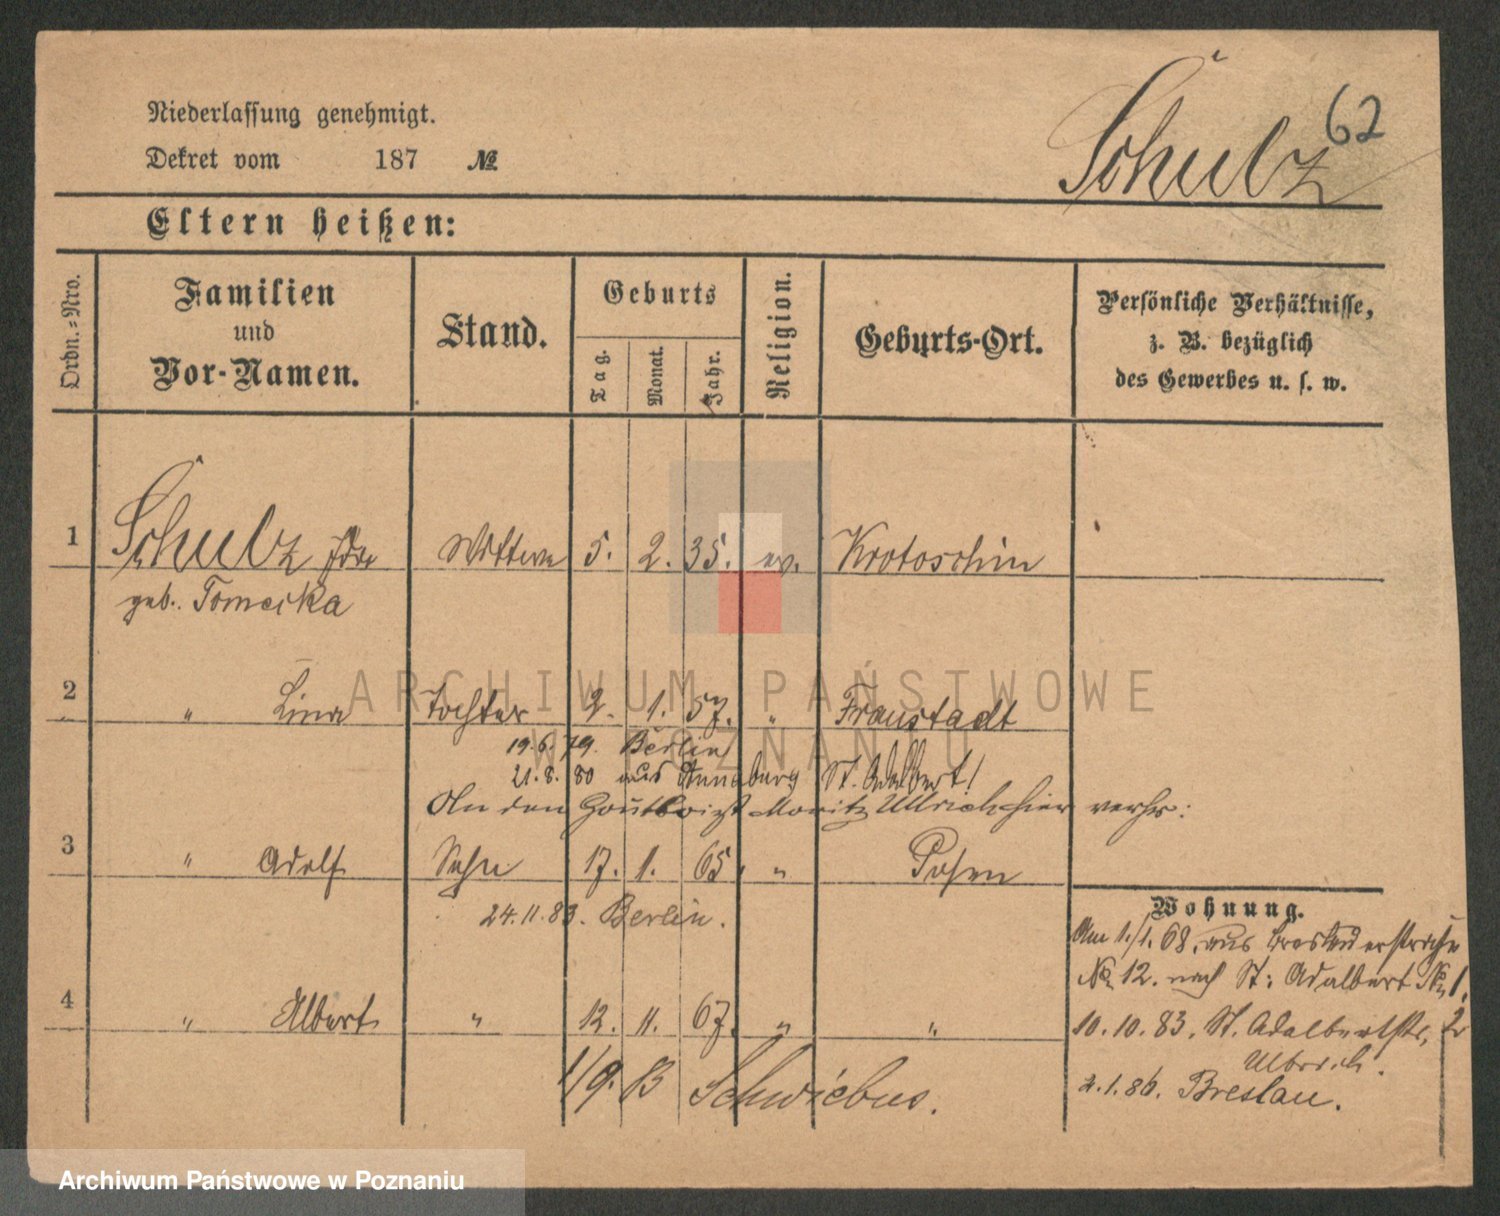 Niederlassung genehmigt.
Dekret vom 187 №
Schulz
62
Eltern heißen:
Ordn.-Nro.
Familien und Vor-Namen.
Stand.
Geburts
Tag. Monat. Jahr.
Religion.
Geburts-Ort.
Persönliche Verhältnisse,
z. B. bezüglich
des Gewerbes u. s. w.
1 Schulz Ida Wittwe 5. 2. 35. ev. Krotoschin
geb. Tomecka
2 " Lina Tochter 2. 1. 57. " Fraustadt
19.6.79. Berlin
21.8.80 aus Annaburg St. Adalbert 1
An den Moritz Ullrich hier verh:
3 " Adolf Sohn 17. 1. 65. " Posen
24.11.83. Berlin.
Wohnung.
Am 1./1. 68. aus
No. 12. nach St: Adalbert No 1.
4 " Albert " 12. 11. 67. " "
10.10.83. St. Adalbertstr. 2
Ulbrich.
1/9. 83 Schwiebus.
2.1.86. Breslau.
ARCHIWUM PAŃSTWOWE
W POZNANIU
Archiwum Państwowe w Poznaniu